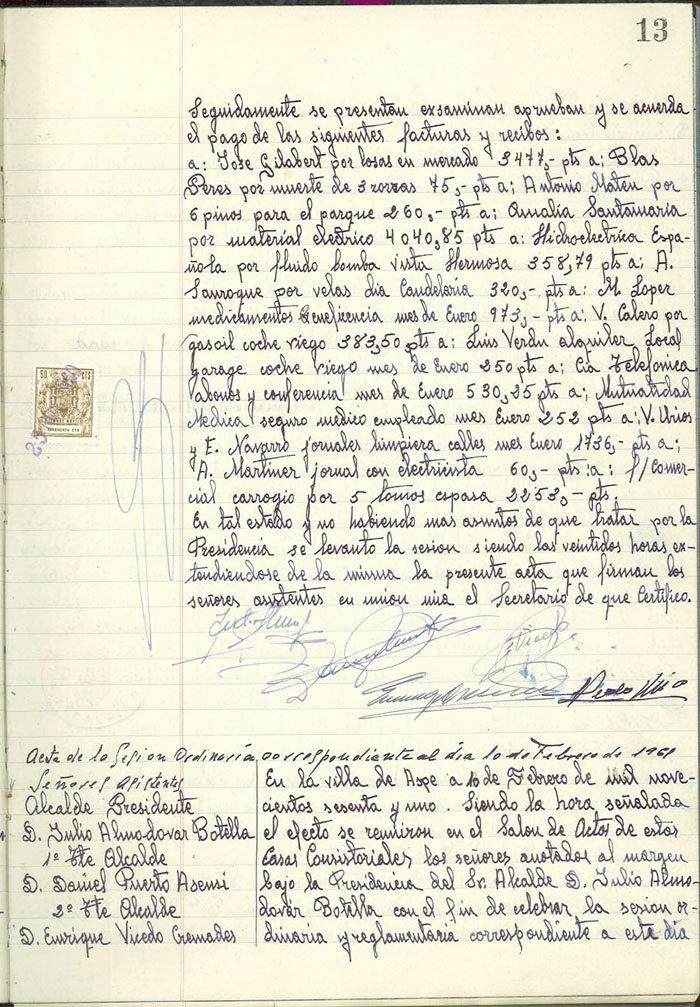 13
Seguidamente se presentan exsaminan aprueban y se acuerda
el pago de las siguientes facturas y recibos:
a: Jose Gilabert por losas en mercado 3477,- pts a; Blas
Peres por muerte de 3 zorras 75,- pts a; Antonio Mateu por
6 pinos para el parque 260,- pts a; Amalia Santamaria
por material electrico 4040,85 pts a: Hidroelectrica Espa-
ñola por fluido bomba Vista Hermosa 358,79 pts a; A.
Sanroque por velas dia Candelaria 320,- pts a: M. Loper
medicamentos Beneficencia mes de Enero 973,- pts a: V. Calero por
gasoil coche viego 383,50 pts a: Luis Verdu alquiler Local
garage coche Viego mes de Enero 250 pts a: Cia Telefonica
abonos y conferencia mes de Enero 530,25 pts a; Mutualidad
Medica seguro medico empleado mes Enero 252 pts a; V. Urios
y E. Navarro jornales limpiera calles mes Enero 1736,- pts a;
A. Martiner jornal con electricista 60,- pts a: f/ Comer-
cial carrogio por 5 tomos espasa 2253,- pts.
En tal estado y no habiendo mas asuntos de que tratar por la
Presidencia se levanto la sesion siendo las veintidos horas ex-
tendiendose de la misma la presente acta que firman los
señores asistentes en union mia el Secretario de que Certifico.
50 CTS
Acta de la Sesion Ordinaria correspondiente al dia 10 de Febrero de 1961
Señores Asistentes
Alcalde Presidente
D. Julio Almodovar Botella
1º Tte Alcalde
D. Daniel Puerto Asensi
2º Tte Alcalde
D. Enrique Vicedo Cremades
En la villa de Aspe a 10 de Febrero de mil nove-
cientos sesenta y uno. Siendo la hora señalada
al efecto se reunieron en el Salon de Actos de estas
Casas Consistoriales los señores anotados al margen
bajo la Presidencia del Sr. Alcalde D. Julio Almo-
dovar Botella con el fin de celebrar la sesion or-
dinaria y reglamentaria correspondiente a este dia